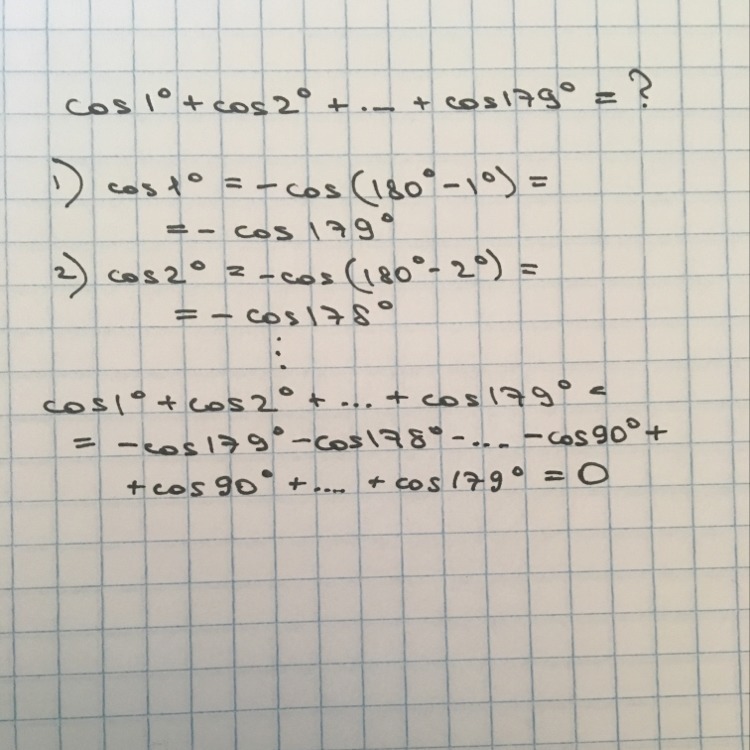 cos1° + cos2° + ... + cos179° = ?
1) cos1° = -cos(180° - 1°) =
= - cos179°
2) cos2° = -cos(180° - 2°) =
= - cos178°
⋮
cos1° + cos2° + ... + cos179° =
= -cos179° - cos178° - .... - cos90° +
+ cos90° + .... + cos179° = 0